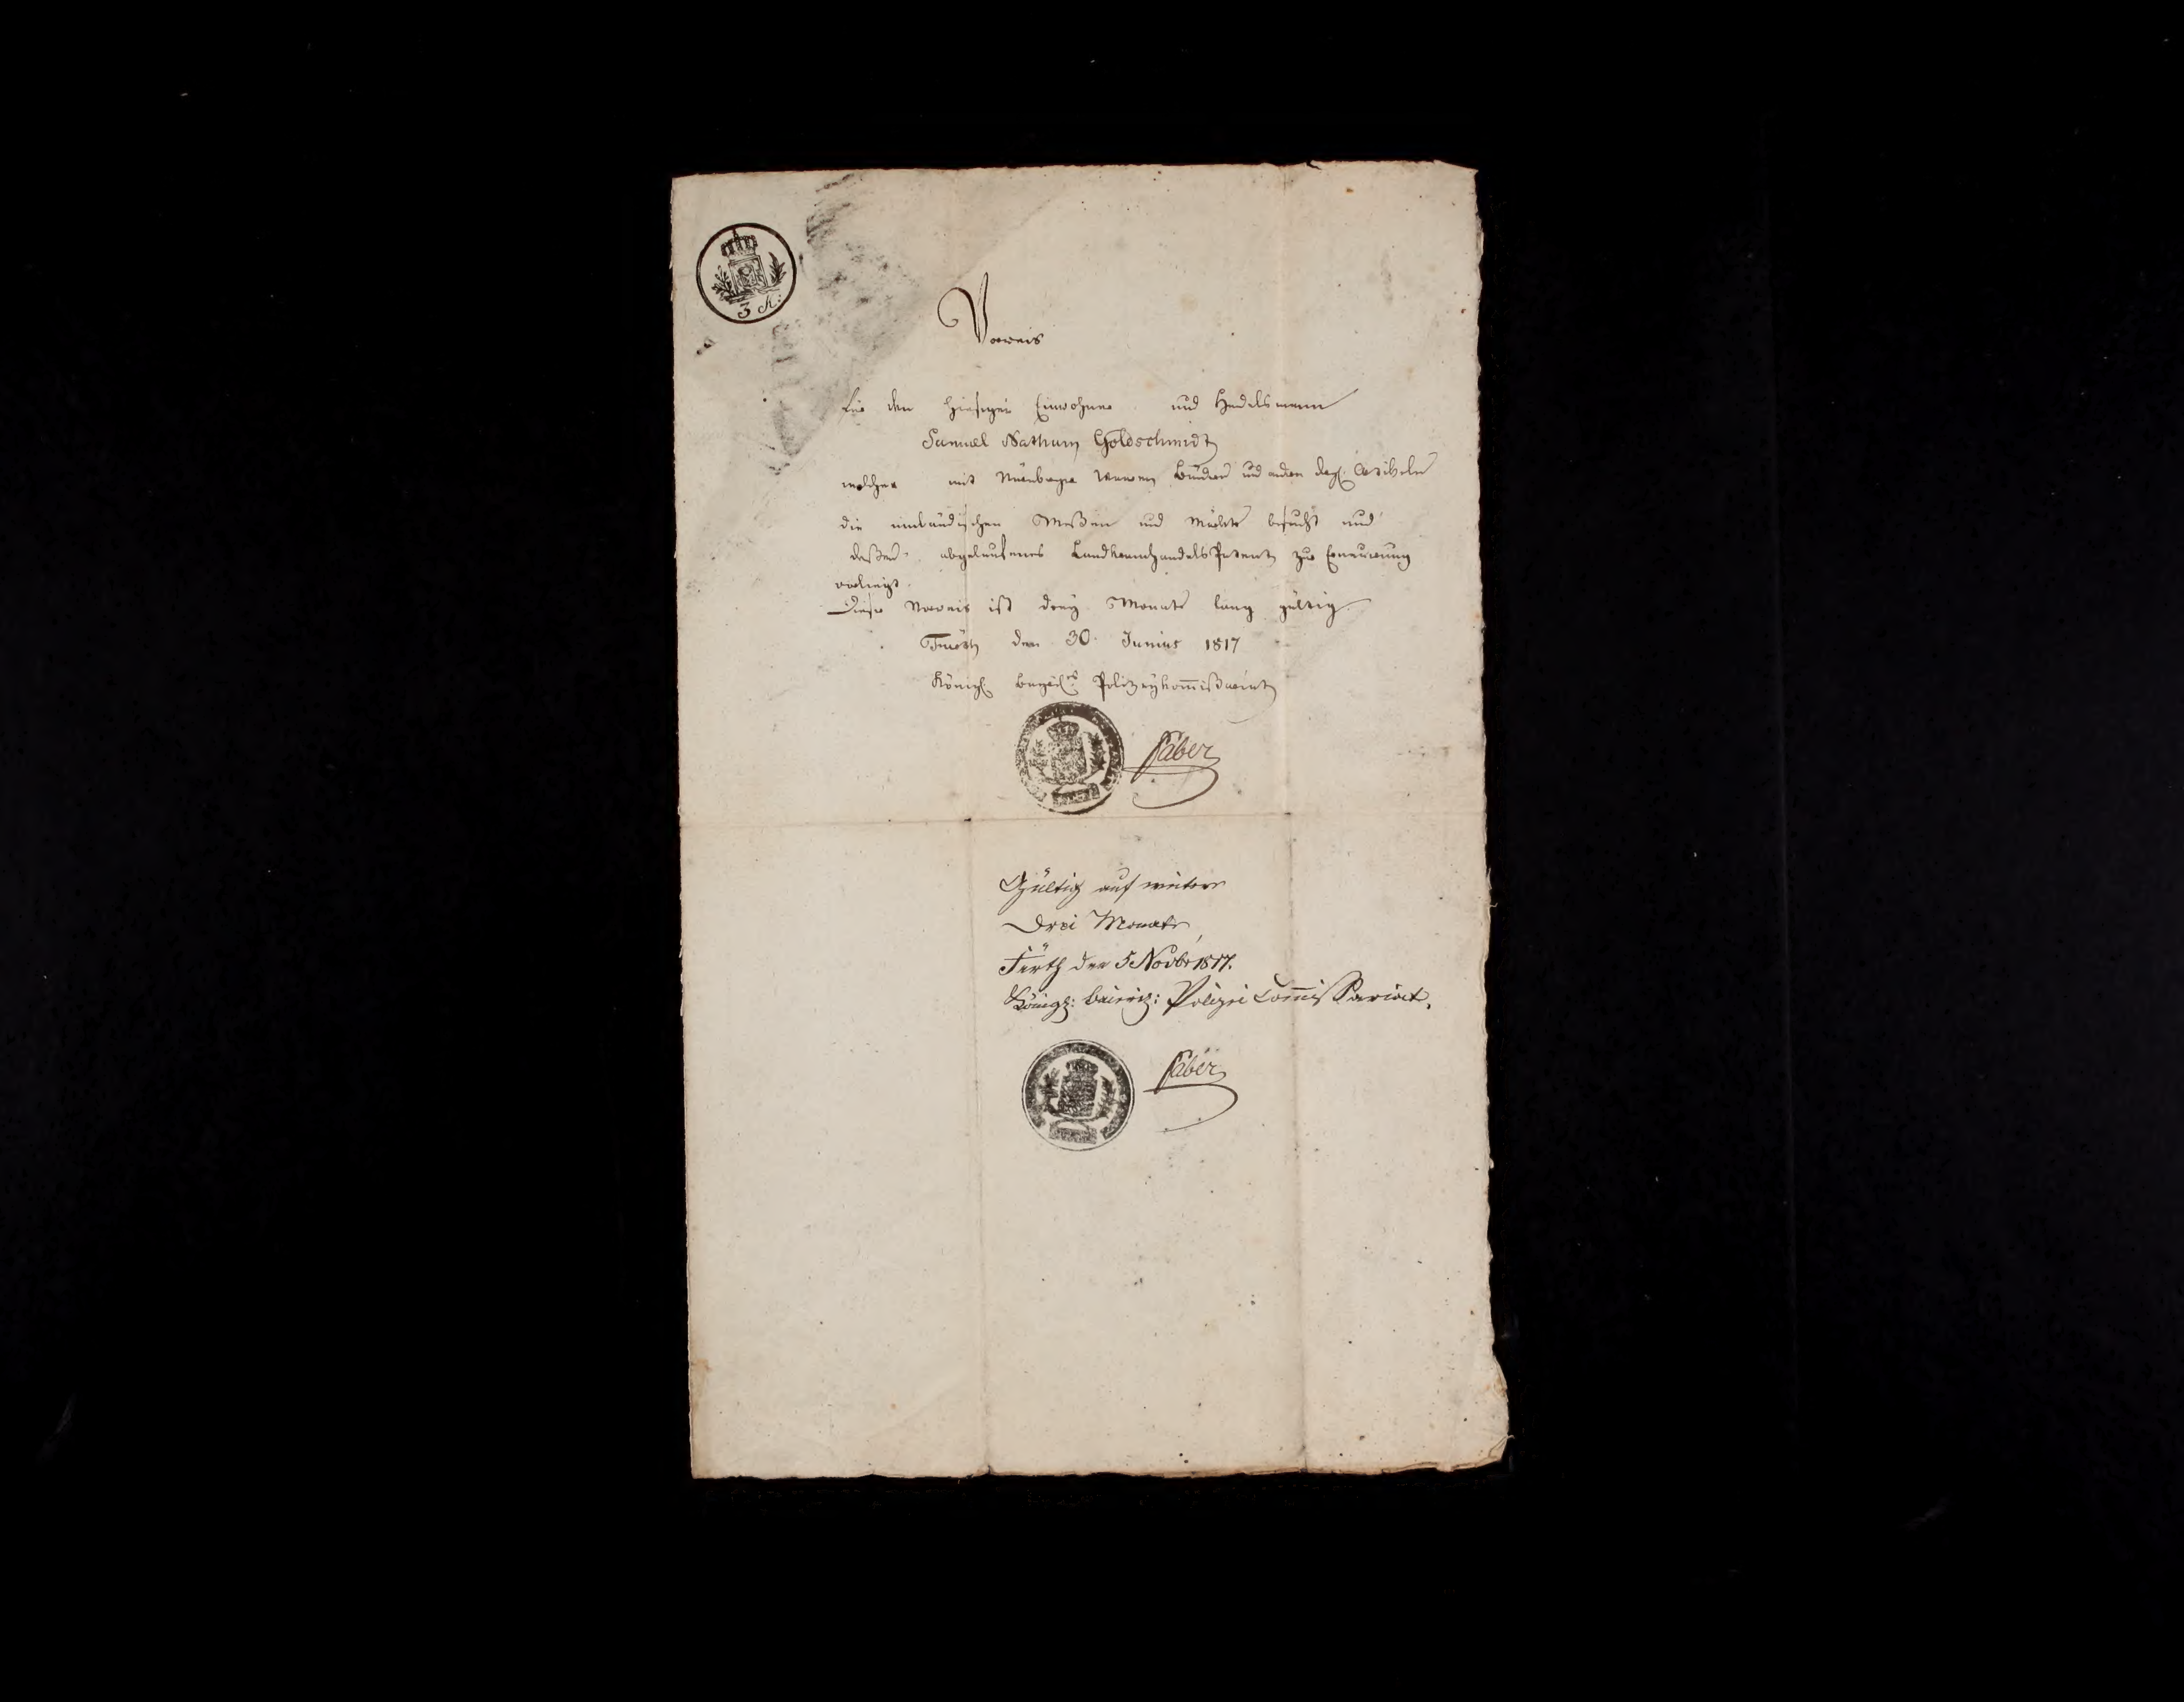 3 K:
Vorweis
für den hiesigen Einwohner und Handelsmann
Samuel Nathan Goldschmidt
welcher mit Nürnberger Waaren Bänder und andern dergl. Artikeln
die innländischen Meßen und Märkte besucht und
deßen abgelaufenes LandkramhandelsPatent zur Erneuerung
vorliegt.
Dieser Vorweis ist drey Monate lang gültig.
Fuerth den 30. Junius 1817
Königl. Polizeykom̅ißariat
Faber
Gültig auf weitere
Drei Monate,
Fürth den 5 Novbr 1817.
Königl: baierisch: Polizei Com̅issariat.
Faber